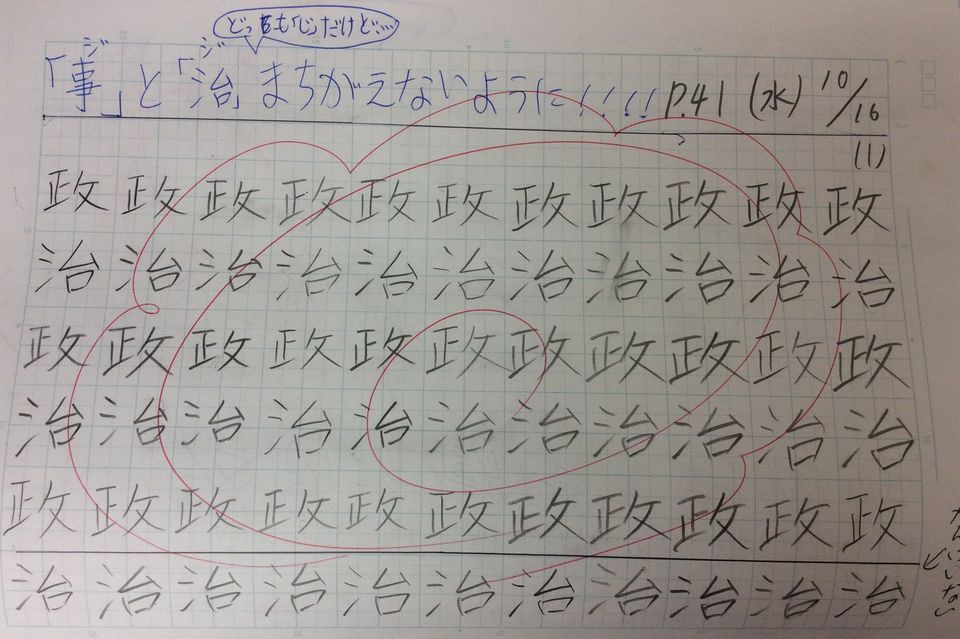 どっちも「じ」だけど…
ジ ジ
「事」と「治」まちがえないように!!!! P.41 (水) 10/16
(1)
政政政政政政政政政政政
治治治治治治治治治治治
政政政政政政政政政政政
治治治治治治治治治治治
政政政政政政政政政政政
治治治治治治治治治治治